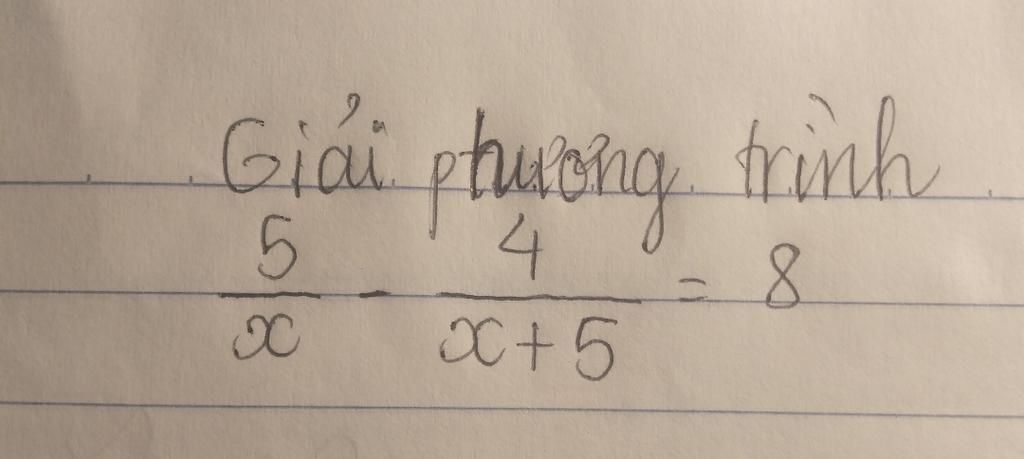 Giải phương trình
5/x - 4/(x+5) = 8